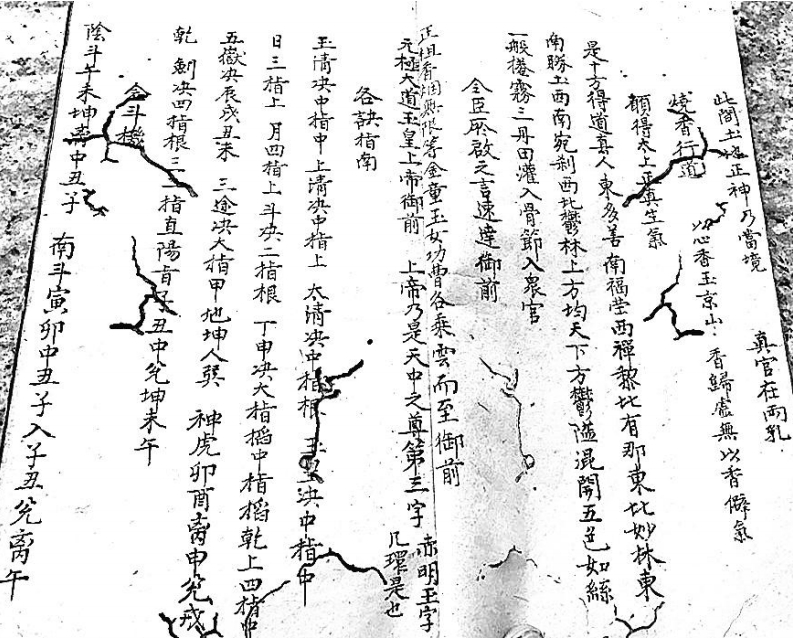 真官在兩乳
此間土地正神乃當境
以心香玉京山：香歸虛無以香僻氣
燒香行道
願得太上正真生氣
是十方得道真人東多善南福堂西禪黎北有那東北妙林東
南勝土西南宛利西北鬱林上方均天下方鬱隘混開五色如絲
一般捲霧三丹田灌入骨節入衆官
令臣所啟之言速達御前
正祖香泗無限等金童玉女功曹各乘雲而至御前
元極大道玉皇上帝御前 上帝乃是天中之尊第三字 赤明玉字
几環是也
各訣指南
玉清决中指中 上清决中指上 太清决中指根 玉皇决中指中
日三指上 月四指上 斗决二指根 丁申决大指搯中指搯乾上四指中
五嶽决辰戌丑未 三途决大指甲 地坤人巽 神虎卯酉离申兌戌
乾 劍决四指根 三二指直陽盲子丑中兌坤未午
金斗機
陰斗午未坤离中丑子 南斗寅卯中丑子入子丑兌离午